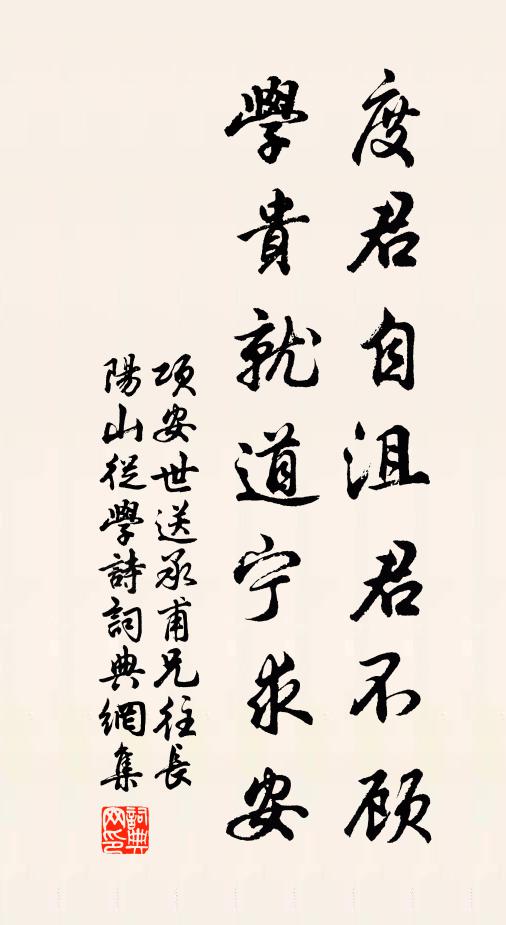 度君自沮君不顾
學貴就道宁求安
項安世送承甫兄往長
陽山從學詩詞典網集
詞典网印